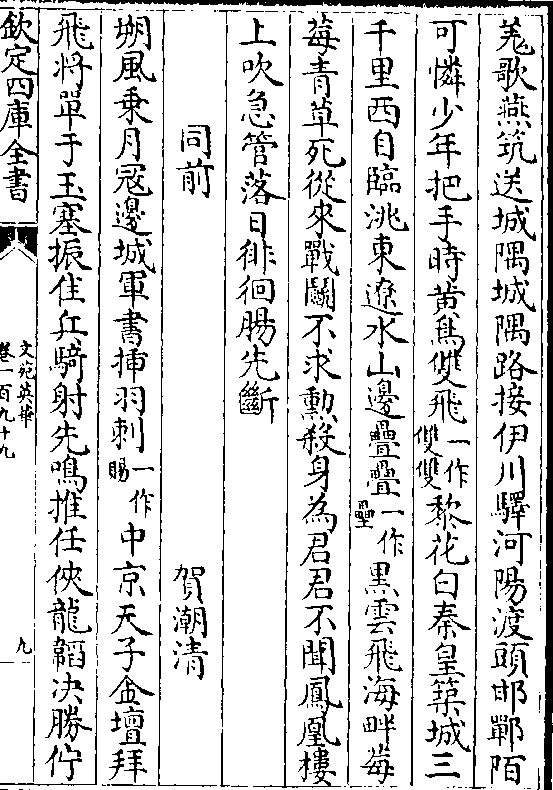 羗歌燕筑送城隅城隅路接伊川驛河陽渡頭邯鄲陌
可憐少年把手時黄鳥雙飛一作雙雙黎花白秦皇築城三
千里西自臨洮東遼水山邊疊疊一作壘黒雲飛海畔莓
莓青草死從來戰鬬不求勲殺身為君君不聞鳳凰樓
上吹急管落日徘徊腸先斷
同前
賀潮清
朔風乗月冦邊城軍書揷羽刺一作賜中京天子金壇拜
飛將單于玉塞振佳兵騎射先鳴推任俠龍韜决勝佇
欽定四庫全書
文苑英華
卷一百九十九
九